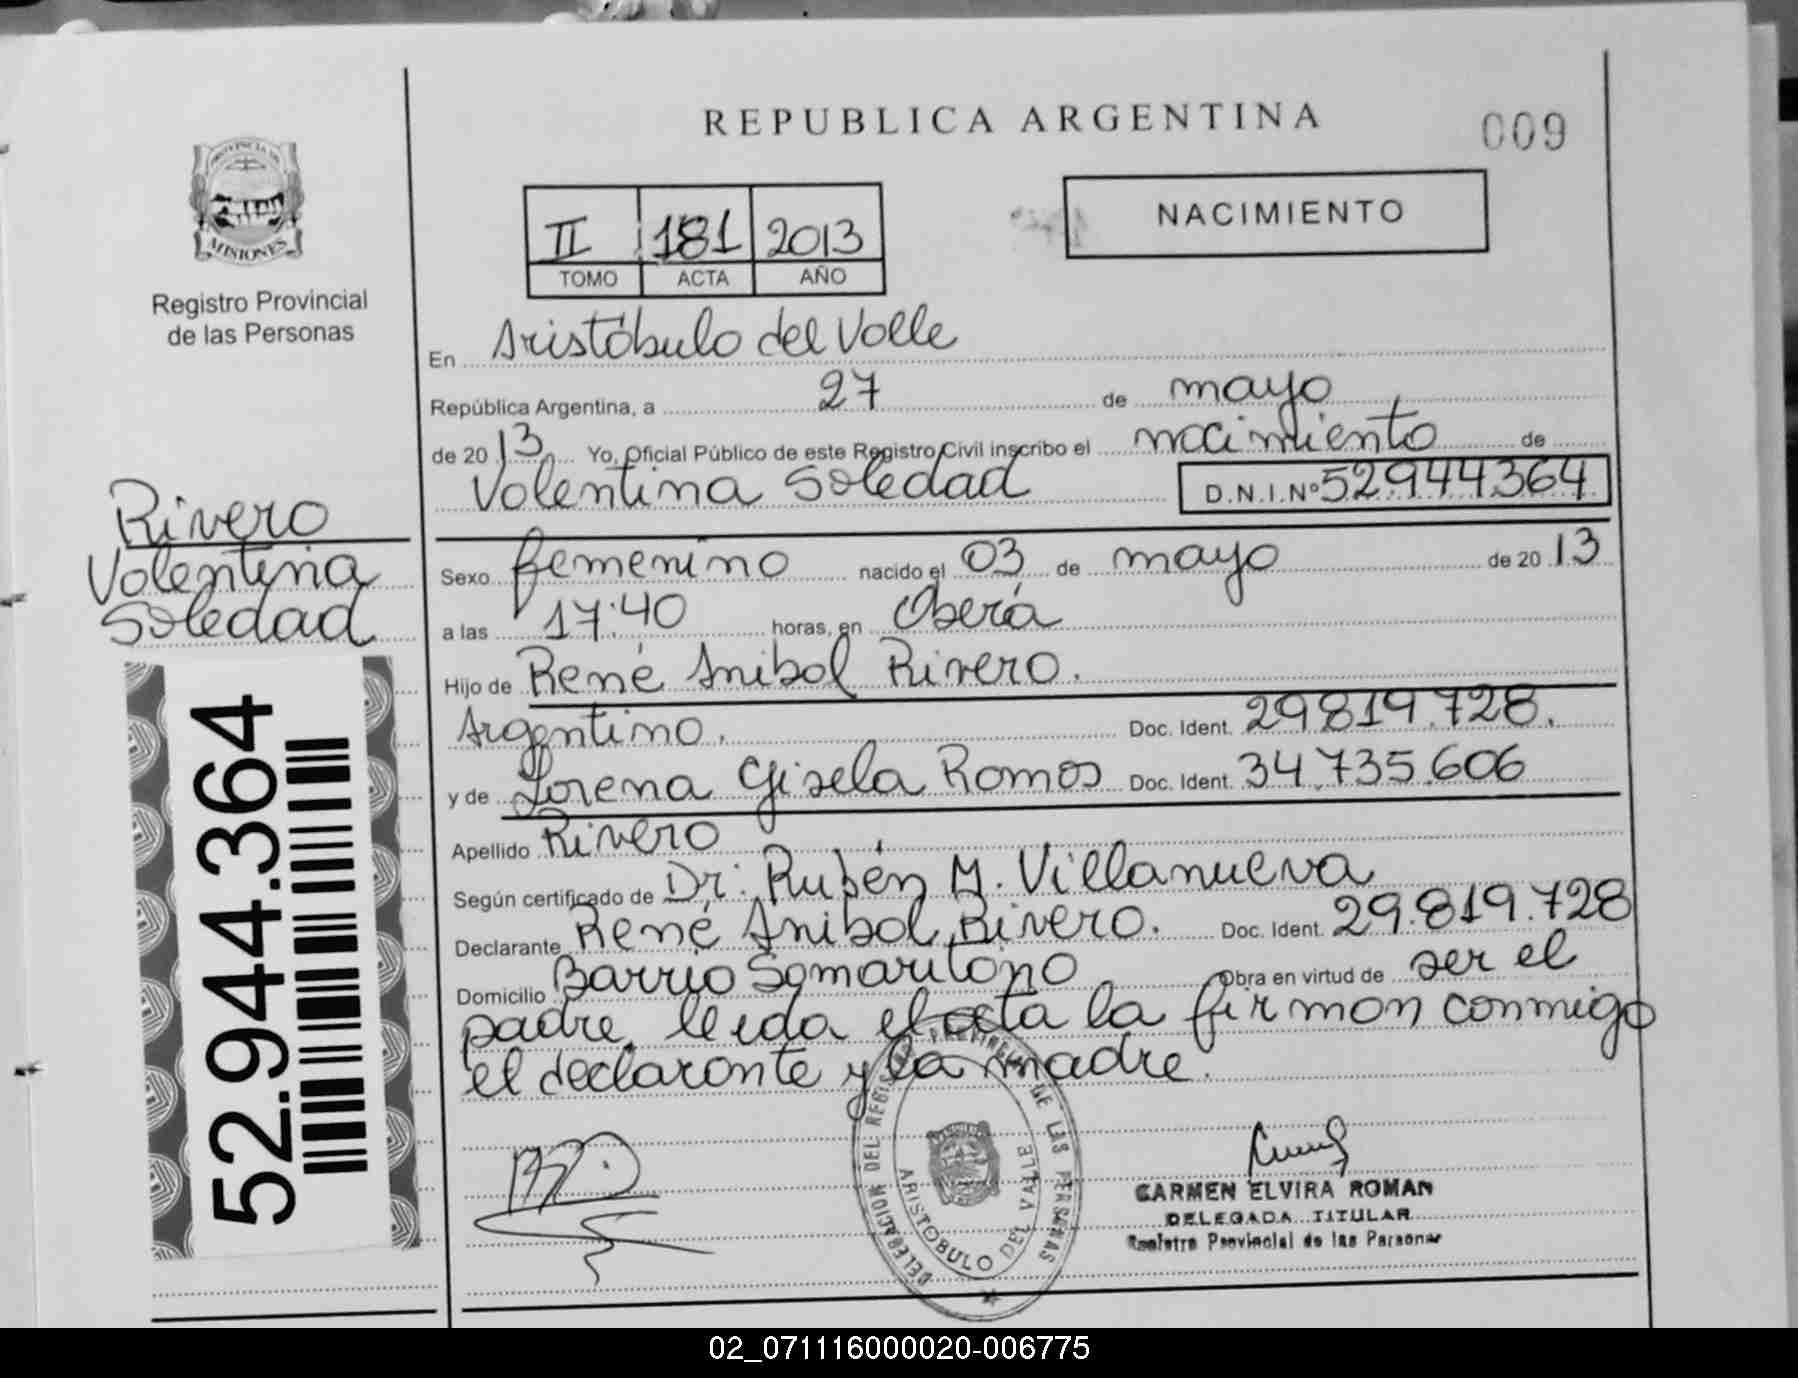 REPUBLICA ARGENTINA
009
PROVINCIA DE
MISIONES
Registro Provincial
de las Personas
II 181 2013
TOMO ACTA AÑO
NACIMIENTO
En Aristóbulo del Valle
República Argentina, a 27 de mayo
de 2013 Yo, Oficial Público de este Registro Civil inscribo el nacimiento de
Valentina Soledad D.N.I.Nº 52944364
Rivero
Valentina
Soledad
Sexo femenino nacido el 03 de mayo de 2013
a las 17:40 horas, en Oberá
Hijo de René Anibal Rivero.
Argentino. Doc. Ident. 29819.728.
y de Lorena Gisela Ramos Doc. Ident. 34.735.606
Apellido Rivero
Según certificado de Dr. Rubén M. Villanueva
Declarante René Anibal Rivero. Doc. Ident. 29.819.728
Domicilio Barrio Samaritano Obra en virtud de ser el
padre. leida el acta la firman conmigo
el declarante y la madre.
52.944.364
DELEGACION DEL REGISTRO PROVINCIAL DE LAS PERSONAS
ARISTOBULO DEL VALLE
CARMEN ELVIRA ROMAN
DELEGADA TITULAR
Registro Provincial de las Personas
02_071116000020-006775